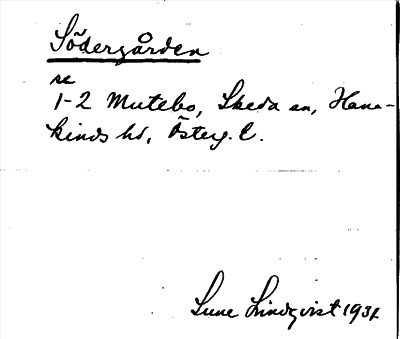 Södergården
se
1-2 Mutebo, Skeda sn, Hane-
kinds hd, Österg. l.
Sune Lindqvist 1931